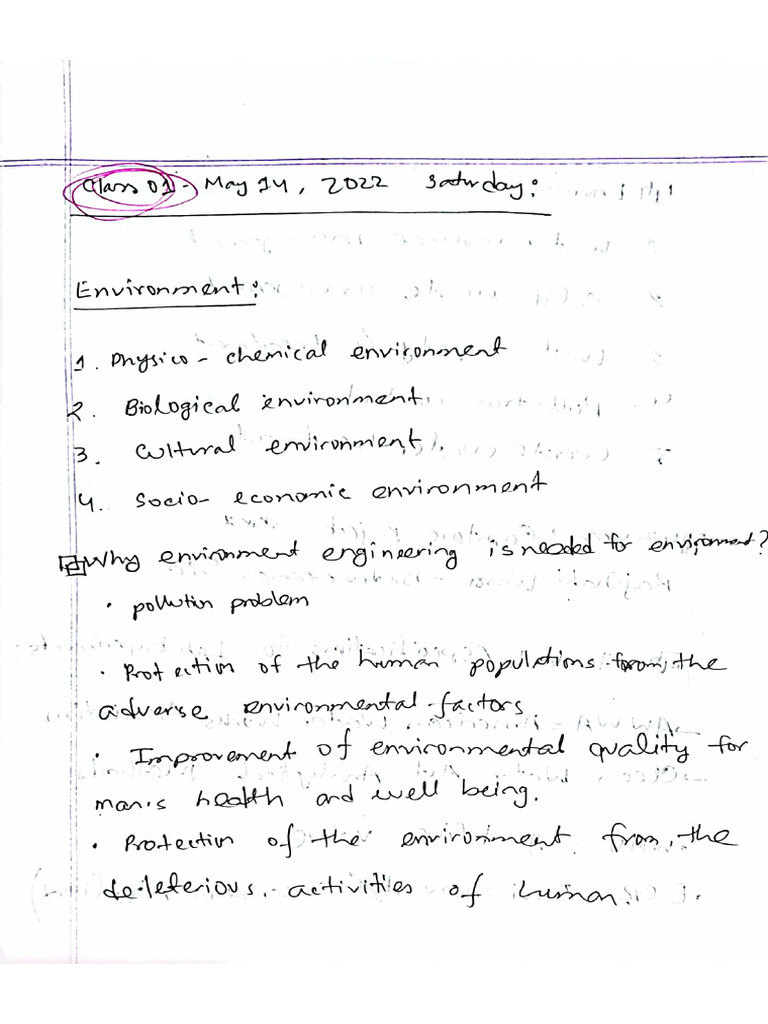 Class 01 - May 14, 2022 Saturday:
Environment:
1. Physico - chemical environment
2. Biological environment.
3. Cultural environment.
4. Socio- economic environment
Why environment engineering is needed for environment?
• pollution problem
• Protection of the human populations from, the
adverse environmental factors.
• Improvement of environmental quality for
man's health and well being.
• Protection of the environment from, the
deleterious activities of human.